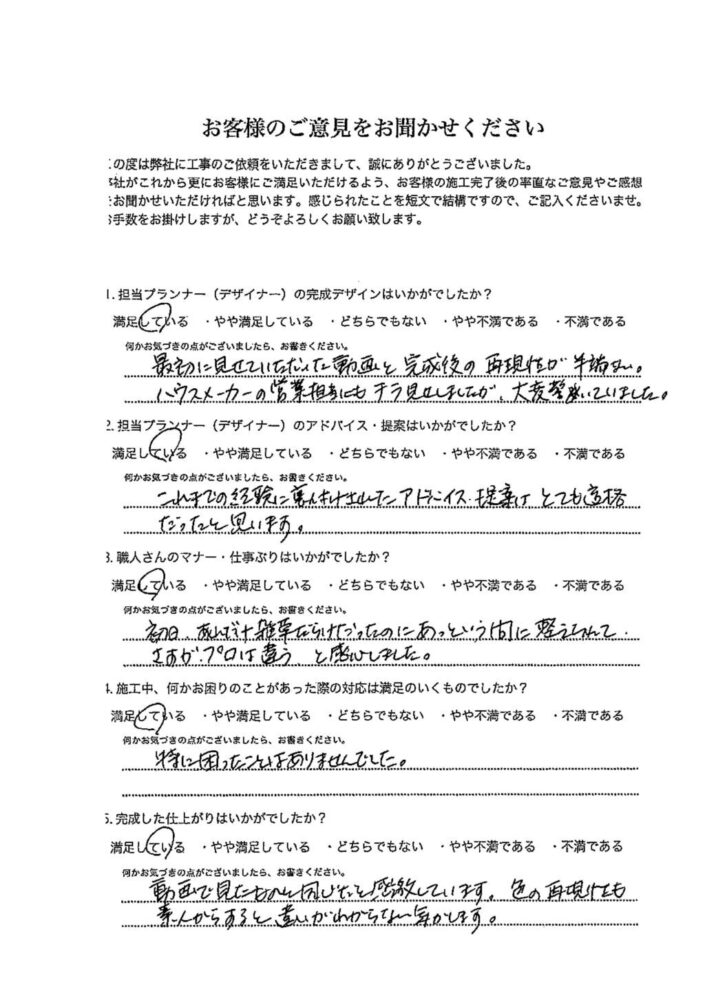 お客様のご意見をお聞かせください
の度は弊社に工事のご依頼をいただきまして、誠にありがとうございました。
社がこれから更にお客様にご満足いただけるよう、お客様の施工完了後の率直なご意見やご感想
お聞かせいただければと思います。感じられたことを短文で結構ですので、ご記入くださいませ。
手数をお掛けしますが、どうぞよろしくお願い致します。
1. 担当プランナー（デザイナー）の完成デザインはいかがでしたか？
満足している ・やや満足している ・どちらでもない ・やや不満である ・不満である
何かお気づきの点がございましたら、お書きください。
最初に見せていただいた動画と完成後の再現性が半端ない。
ハウスメーカーの営業担当にもチラ見せしましたが、大変驚いていました。
2. 担当プランナー（デザイナー）のアドバイス・提案はいかがでしたか？
満足している ・やや満足している ・どちらでもない ・やや不満である ・不満である
何かお気づきの点がございましたら、お書きください。
これまでの経験に裏付けされたアドバイス・提案は とても適格
だったと思います。
3. 職人さんのマナー・仕事ぶりはいかがでしたか？
満足している ・やや満足している ・どちらでもない ・やや不満である ・不満である
何かお気づきの点がございましたら、お書きください。
初日、あれだけ雑草だらけだったのにあっという間に整えられて、
さすが、プロは違う、と感心しました。
4. 施工中、何かお困りのことがあった際の対応は満足のいくものでしたか？
満足している ・やや満足している ・どちらでもない ・やや不満である ・不満である
何かお気づきの点がございましたら、お書きください。
特に困ったことはありませんでした。
5. 完成した仕上がりはいかがでしたか？
満足している ・やや満足している ・どちらでもない ・やや不満である ・不満である
何かお気づきの点がございましたら、お書きください。
動画で見たものと同じだと感激しています。色の再現性も
素人からすると違いがわからない気がします。